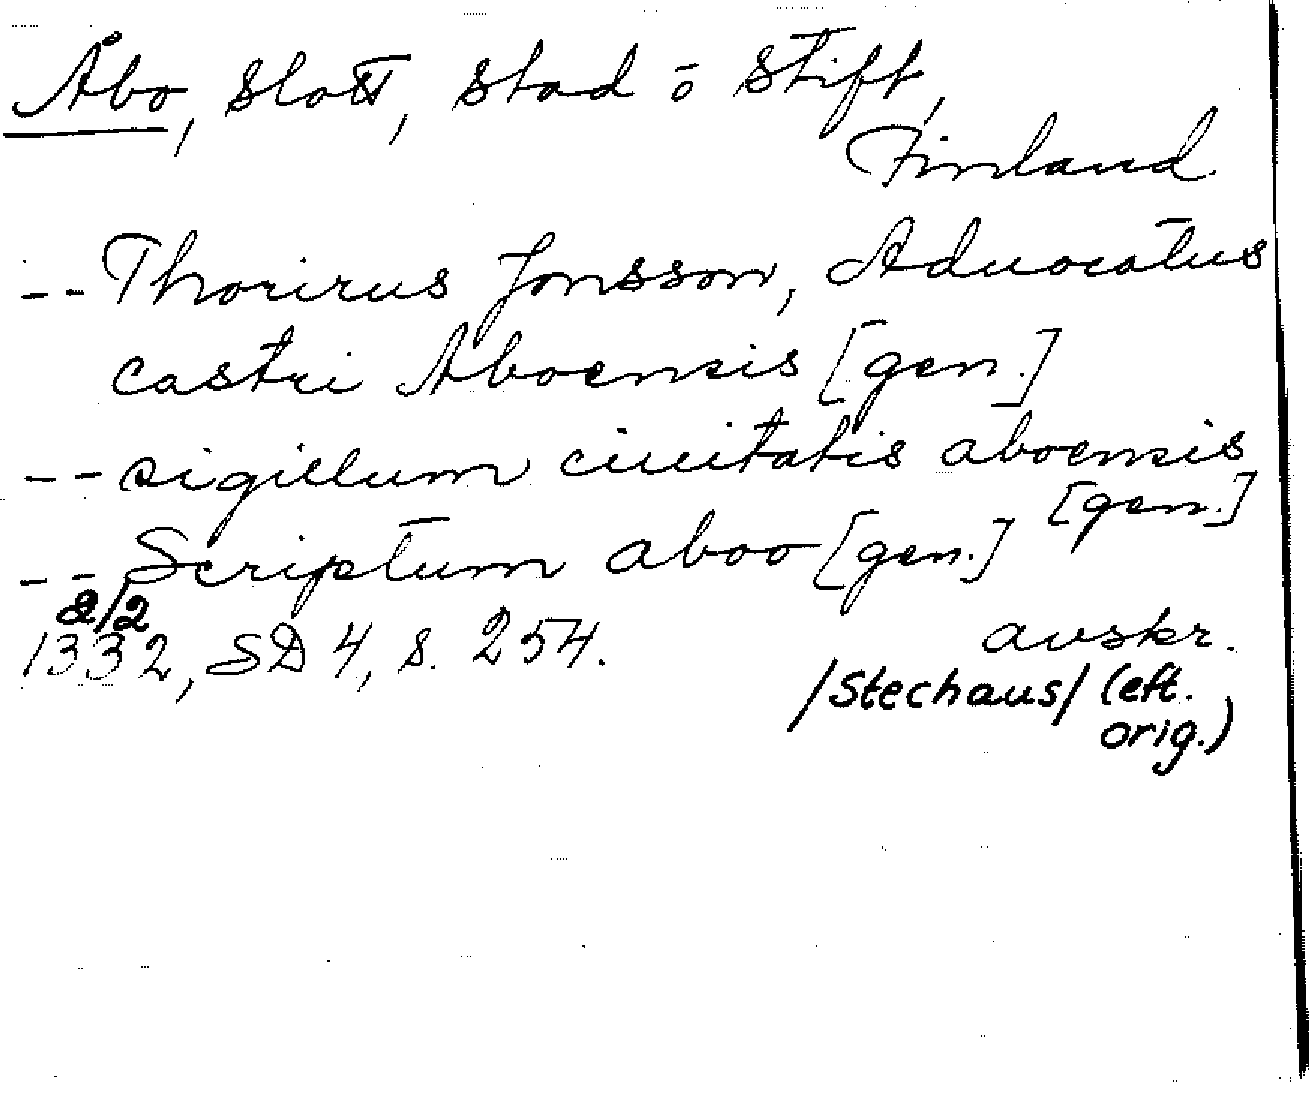 Åbo, Slott, Stad ō Stift,
Finland
-- Thorirus Jonsson, Aduocatus
castri Aboensis [gen.]
-- sigillum ciuitatis aboensis
[gen.]
-- Scriptum aboo [gen.]
2/2
1332, SD 4, s. 254.
avskr.
/Stechaus/ (eft.
orig.)